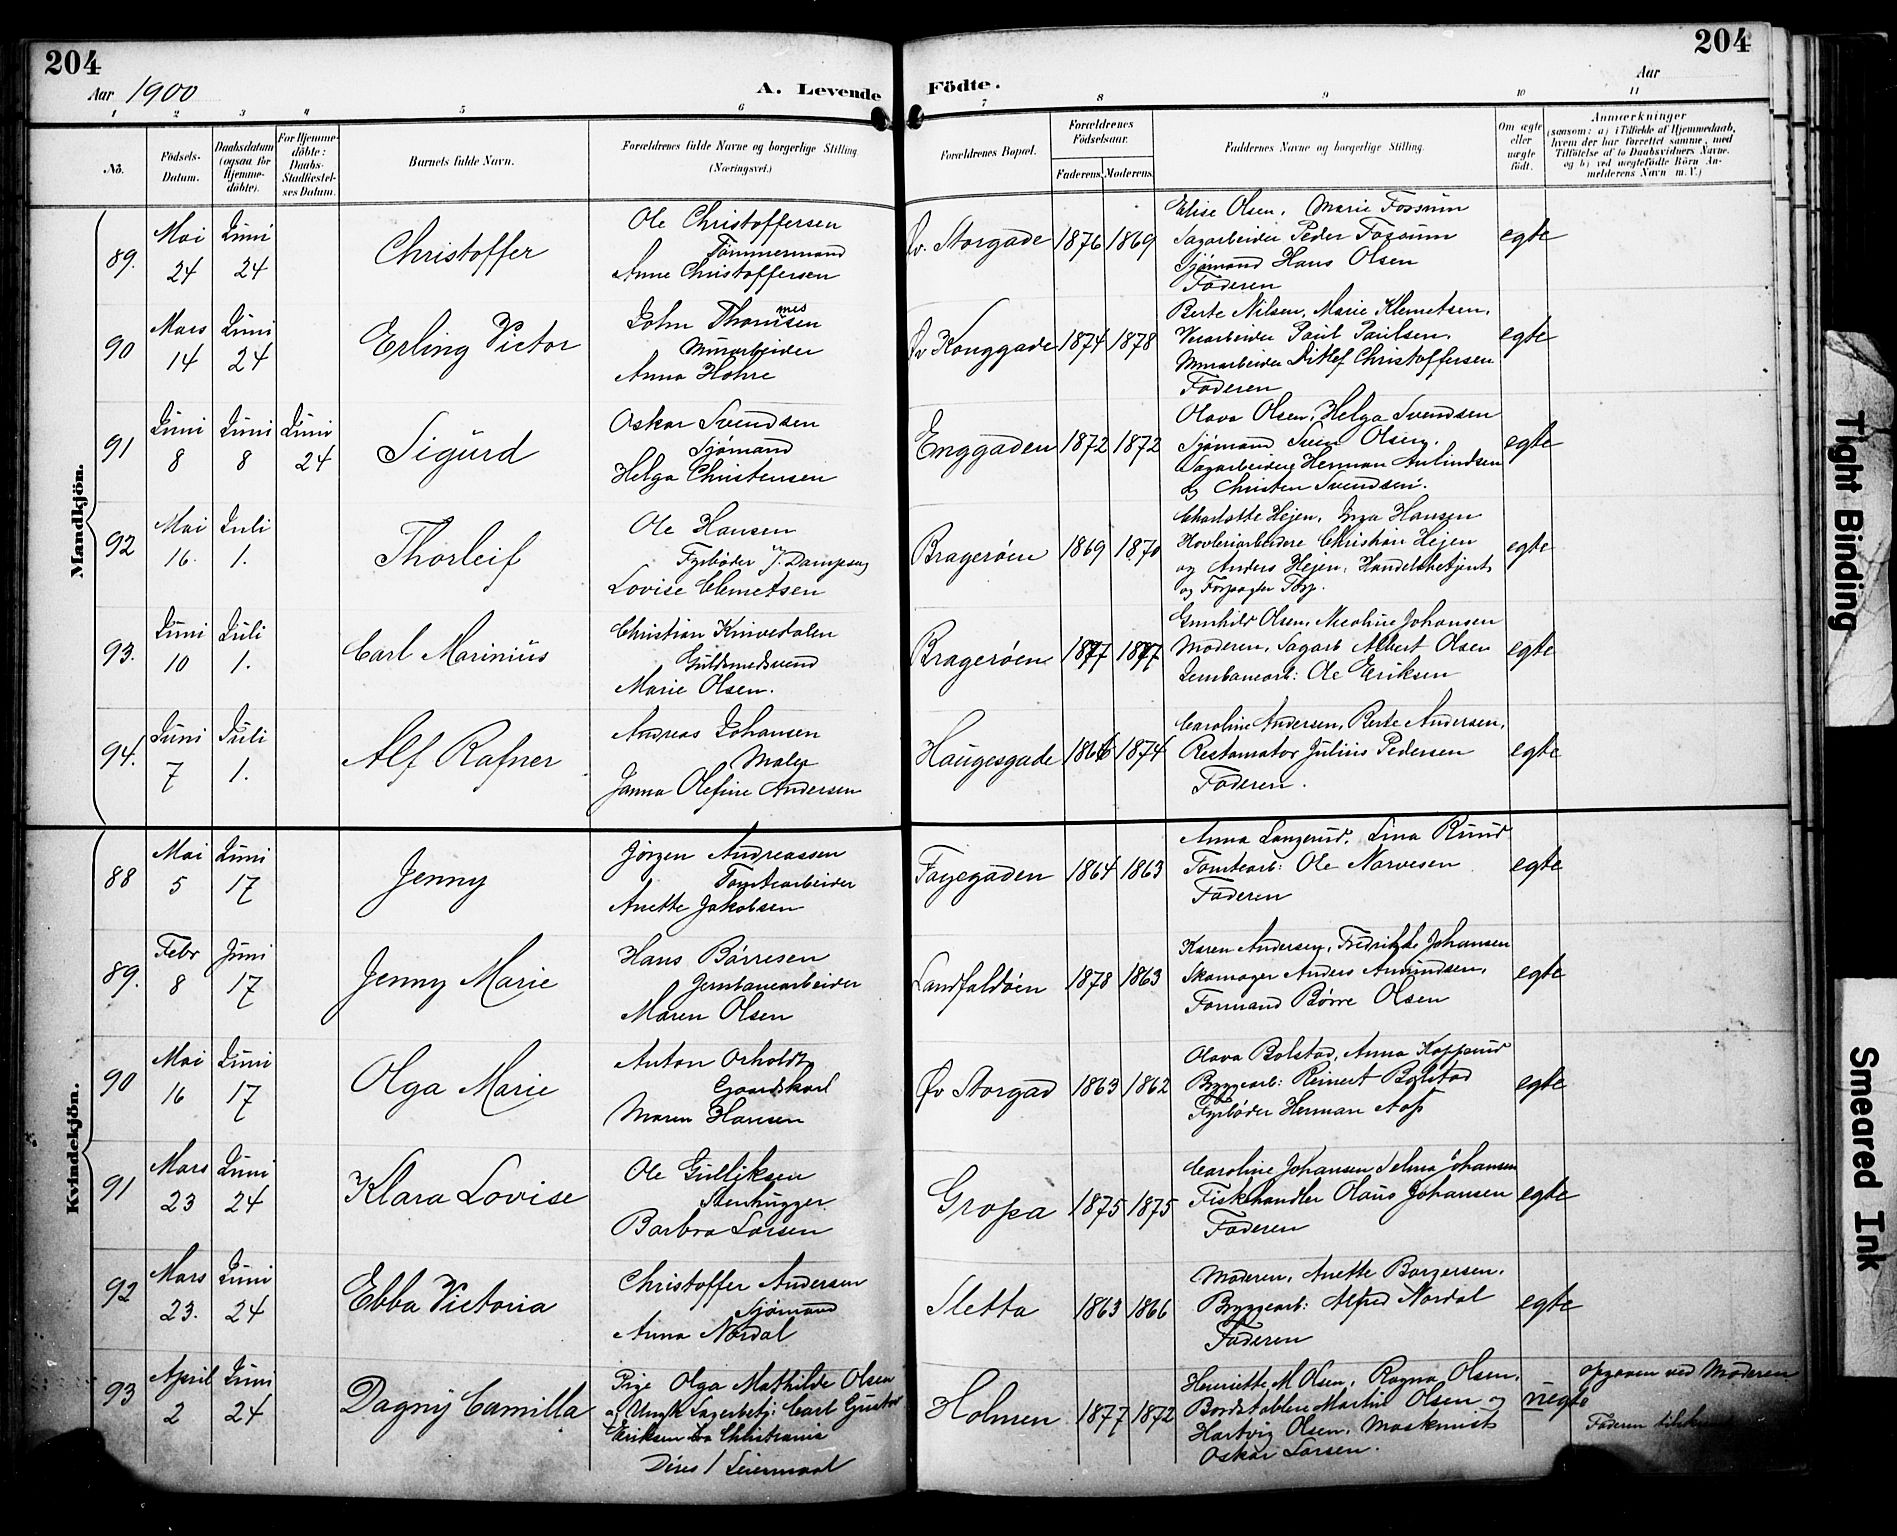 204
204
Aar 1900
A. Levende Födte.
Aar
1 2 3 4 5 6 7 8 9 10 11
No.
Födsels-Datum.
Daabsdatum (ogsaa for Hjemme-döbte).
For Hjemme-döbte: Daabs-Stadfæstelses Datum.
Barnets fulde Navn.
Forældrenes fulde Navne og borgerlige Stilling (Næringsvei.)
Forældrenes Bopæl.
Forældrenes Födselsaar.
Faderens. Moderens.
Faddernes Navne og borgerlige Stilling.
Om ægte eller uægte födt.
Anmærkninger
(saasom: a) i Tilfælde af Hjemmedaab, hvem der har forrettet samme, med Tilföielse af to Daabsvidners Navne. og b) ved uegtefödte Börn Anmelderens Navn m.V.)
Mandkjön.
89. Mai 24 Juni 24
Christoffer
Ole Christoffersen
Tømmermand
Anne Christoffersen
Øv. Storgade 1876 1869
Elise Olsen, Marie Fossum
Sagarbeider Peder Fossum
Sjømand Hans Olsen
Faderen
egte
90 Mars 14 Juni 24
Erling Victor
John Thomesen
Murarbeider
Anna Hohre
Øv Konggade 1874 1878
Berte Nilsen, Marie Klemetsen,
Paul Paulsen.
Murarbeider Ditlef Christoffersen
Faderen
egte
91 Juni 8 Juni 8 Juni 24
Sigurd
Oskar Svendsen
Sjømand
Helga Christensen
Enggaden 1872 1872
Olava Olsen, Helga Svendsen
Sjømand Sven Olsen,
Sagarbeidere Herman
og Christen Svendsen.
egte
92 Mai 16. Juli 1.
Thorleif
Ole Hansen
Fyrbøder v/ Dampsag
Lovise Clemetsen
Bragerøen 1869 1870
Charlotte Hejen, Inga Hansen
Høvleriarbeidere Christian Hejen
og Anders Hejen, Handelsbetjent
og Forpagter Torp.
egte
93. Juni 10 Juli 1.
Carl Marinius
Christian Knivedalen
Guldsmedsvend
Marie Olsen.
Bragerøen 1877 1877
Gunhild Olsen, Johansen
Moderen, Sagarb Albert Olsen
Jernbanearb: Ole Eriksen
egte
94. Juni 7 Juli 1.
Alf Rafner
Andreas Johansen
Maler
Janna Olefine Andersen
Haugesgade 1866 1874
Caroline Andersen, Berte Andersen,
Restauratør Julius Pedersen
Faderen.
egte
Kvindekjön.
88 Mai 5 Juni 17
Jenny
Jørgen Andreassen
Tomtearbeider
Anette Jakobsen
Fayegaden 1864 1863
Anna Langerud, Lina Ruud
Tomtearb: Ole Narvesen
Faderen
egte
89. Febr 8 Juni 17
Jenny Marie
Hans Børresen
Jernbanearbeider
Maren Olsen
Landfaldøen 1878 1863
Karen Andersen, Fredrikke Johansen
Skomager Anders Amundsen,
Formand Børre Olsen
egte
90 Mai 16 Juni 17
Olga Marie
Anton Orholdt
Gaardskarl
Maren Hansen
Øv Storgad 1863 1862
Olava Bolstad, Anna Kopperud
Bryggearb: Reinert Bolstad
Fyrbøder Herman Aas
egte
91 Mars 23 Juni 24
Klara Lovise
Ole Gulliksen
Stenhugger
Barbra Larsen
Gropa 1875 1875
Caroline Johansen, Selma Johansen
Fiskehandler Olaus Johansen
Faderen
egte
92 Mars 23. Juni 24
Ebba Victoria
Christoffer Andersen
Sjømand
Anna Nordal
Sletta 1863 1866
Moderen, Anette Borgersen,
Bryggearb: Alfred Nordal
Faderen
egte
93 April 2 Juni 24
Dagny Camilla
Pige Olga Mathilde Olsen
og Ungk Lagerbetj: Carl Gustav
Eriksen fra Christiania
Deres 1 Leiermaal
Holmen 1877 1872
Henriette M Olsen, Ragna Olsen,
Bordstablere Martin Olsen og
Hartvig Olsen, Maskinist
Oskar Larsen.
uegte
opgaven ved Moderen
Faderen
Tight Binding
Smeared Ink